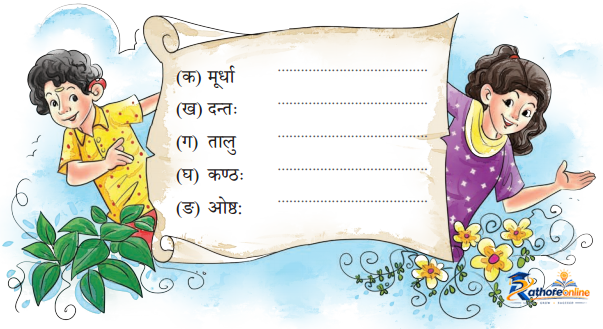 (क) मूर्धा ........................................
(ख) दन्तः ........................................
(ग) तालु ........................................
(घ) कण्ठः ........................................
(ङ) ओष्ठः ........................................
Rathoreonline